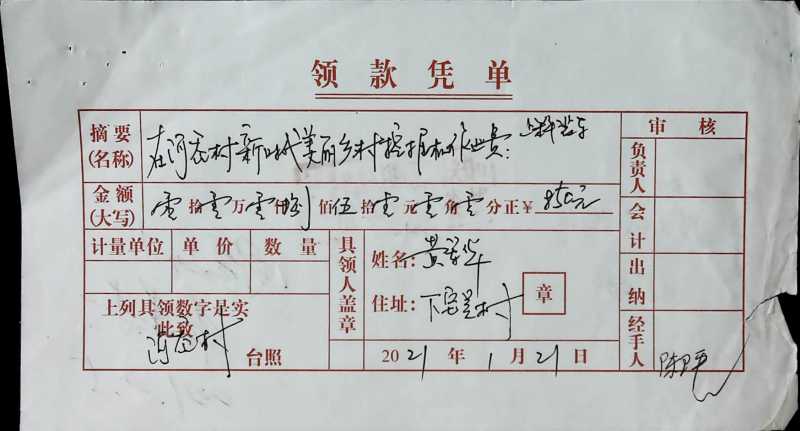 领款凭单
摘要(名称) 在河 村新时代美丽乡村挖掘机作业费:
金额(大写) 零拾零万零仟捌佰伍拾零元零角零分正¥850元
计量单位 单价 数量
上列具领数字是实
此致
村 台照
具领人盖章
姓名:黄 华
住址:下 村
章
2021年1月21日
审核
负责人
会计
出纳
经手人 陈 平